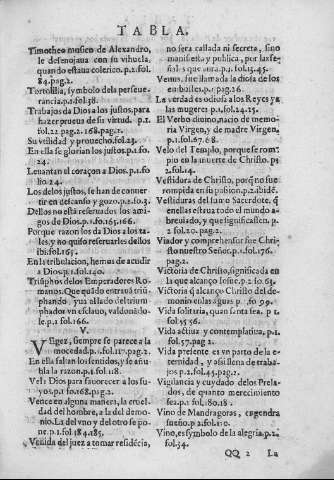 TABLA.
Timotheo musico de Alexandro,
le desenojaua con su vihuela,
quando estaua colerico. p.2. fol.
84. pag.2.
Tortolilla, symbolo dela perseue
rancia. p.1. fol.38.
Trabajos da Dios a los justos, para
hazer prueua de su virtud. p.1.
fol.22. pag.2. 168. pag.2.
Su vtilidad y prouecho. fol.23.
En ella se glorian los justos. p.1. fo.
24.
Leuantan el coraçon a Dios. p.1. fo
lio 24.
Los delos justos, se han de conuer
tir en descanso y gozo. p.2. fo.3.
Dellos no està reseruados los ami-
gos de Dios. p.1. fo.165. 166.
Porque razon los da Dios a los ta-
les, y no quiso reseruarles dellos
ibi. fol.165.
En la tribulacion, hemos de acudir
a Dios. p.1. fol.140.
Triũphos delos Emperadores Ro-
manos. Que quãdo entraua triũ-
phando yua al lado del trium
phador vn esclauo, valdonado-
le. p.1. fol.166.
V.
Vegez, siempre se parece a la
mocedad. p.1. fol.117. pag.2.
En ella faltan los sentidos, y se añu-
bla la razon. p.1. fol.118.
Vela Dios para fauorecer a los su-
yos. p.1. fo.168. pag.2.
Vence en alguna manera, la cruel-
dad del hombre, a la del demo-
nio. La del vno y del otro se po-
ne. p.1. fol.184. 185.
Venida del juez a tomar residẽcia,
no sera callada ni secreta, sino
manifiesta y publica, per las se-
ñales que aura. p.1. fol.15. 45.
Venus, fue llamada la diosa de los
embustes. p.1. pag.26.
La verdad es odiosa a los Reyes y a
las mugeres. p.1. fol.24. 25.
El Verbo diuino, nacio de memo
ria Virgen, y de madre Virgen,
p.1. fol.67. 68.
Velo del Templo, porque se rom-
pio en la muerte de Christo. p.
2. fol.14.
Vestidura de Christo, porq̃ no fue
rompida en su passion. p.2. ibidẽ.
Vestiduras del sumo Sacerdote. q̃
en ellas estaua todo el mundo a-
breuiado, y que significassen. p.
2. fol.20. pag.2.
Viador y comprehensor fue Chris-
to nuestro Señor. p.1. fol.176.
pag.2.
Victoria de Christo, significada en
la que alcanço Iesue. p.2. fo.63.
Victoria q̃ alcanço Christo del de-
monio en las aguas. p. fo. 99.
Vida solitaria, quan santa sea. p.1.
fol.55. 56.
Vida actiua y contemplatiua. p.1.
fol.57. pag.2.
Vida presente es vn parto de la e-
ternidad, y assi llena de traba-
jos. p.2. fol.45. pag.2.
Vigilancia y cuydado delos Prela-
dos, de quanto merecimiento
sea. p.1. fol.180. 18
Vino de Mandragoras, engendra
sueño. p.2. fol.40.
Vino, es symbolo de la alegria. p.2.
fol.34.
QQ 2 La